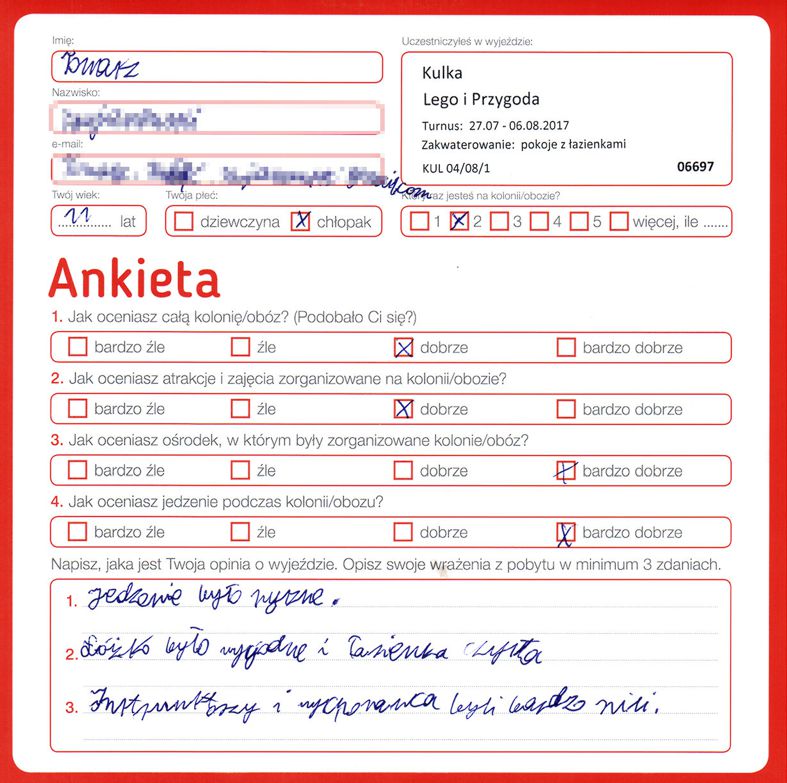 Imię:
Uczestniczyłeś w wyjeździe:
Kulka
Lego i Przygoda
Nazwisko:
Turnus: 27.07 - 06.08.2017
e-mail:
Zakwaterowanie: pokoje z łazienkami
KUL 04/08/1 06697
Twój wiek: Twoja płeć: Który raz jesteś na kolonii/obozie?
11 lat dziewczyna X chłopak 1 X 2 3 4 5 więcej, ile .......
Ankieta
1. Jak oceniasz całą kolonię/obóz? (Podobało Ci się?)
bardzo źle źle X dobrze bardzo dobrze
2. Jak oceniasz atrakcje i zajęcia zorganizowane na kolonii/obozie?
bardzo źle źle X dobrze bardzo dobrze
3. Jak oceniasz ośrodek, w którym były zorganizowane kolonie/obóz?
bardzo źle źle dobrze X bardzo dobrze
4. Jak oceniasz jedzenie podczas kolonii/obozu?
bardzo źle źle dobrze X bardzo dobrze
Napisz, jaka jest Twoja opinia o wyjeździe. Opisz swoje wrażenia z pobytu w minimum 3 zdaniach.
1. Jedzenie było pyszne.
2. Łóżko było wygodne i łazienka czysta
3. i byli bardzo mili.